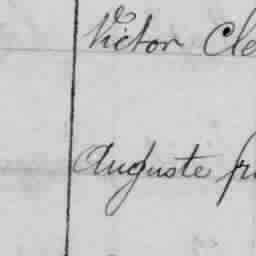 Victor Cle
Auguste fr